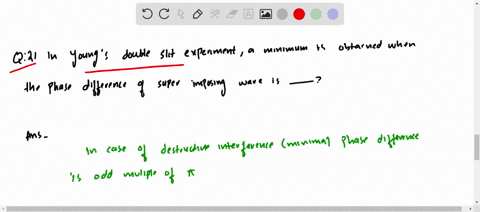 Q:21 In Young's double slit experiment, a minimum is obtained when
the phase difference of super imposing wave is ___?
Ans-
In case of destructive interference (minima) phase difference
is odd muliple of π